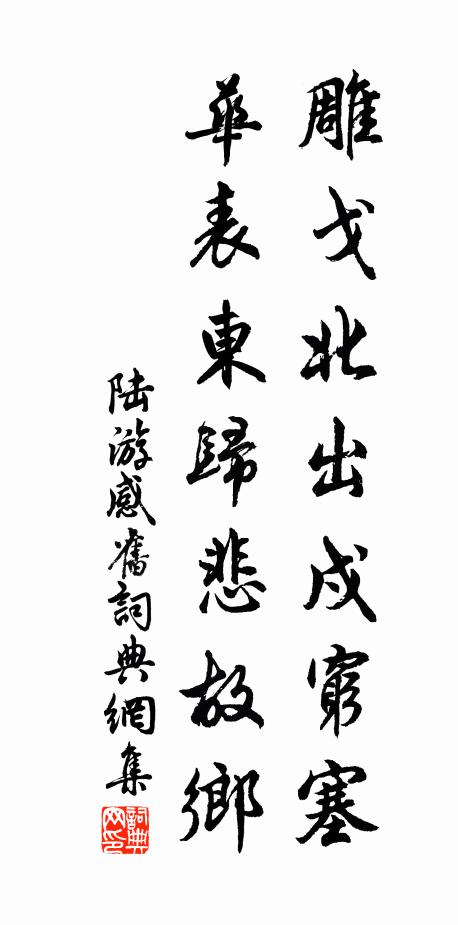 雕戈北出戍窮塞
華表東歸悲故鄉
陸游感舊詞典網集
詞典網印